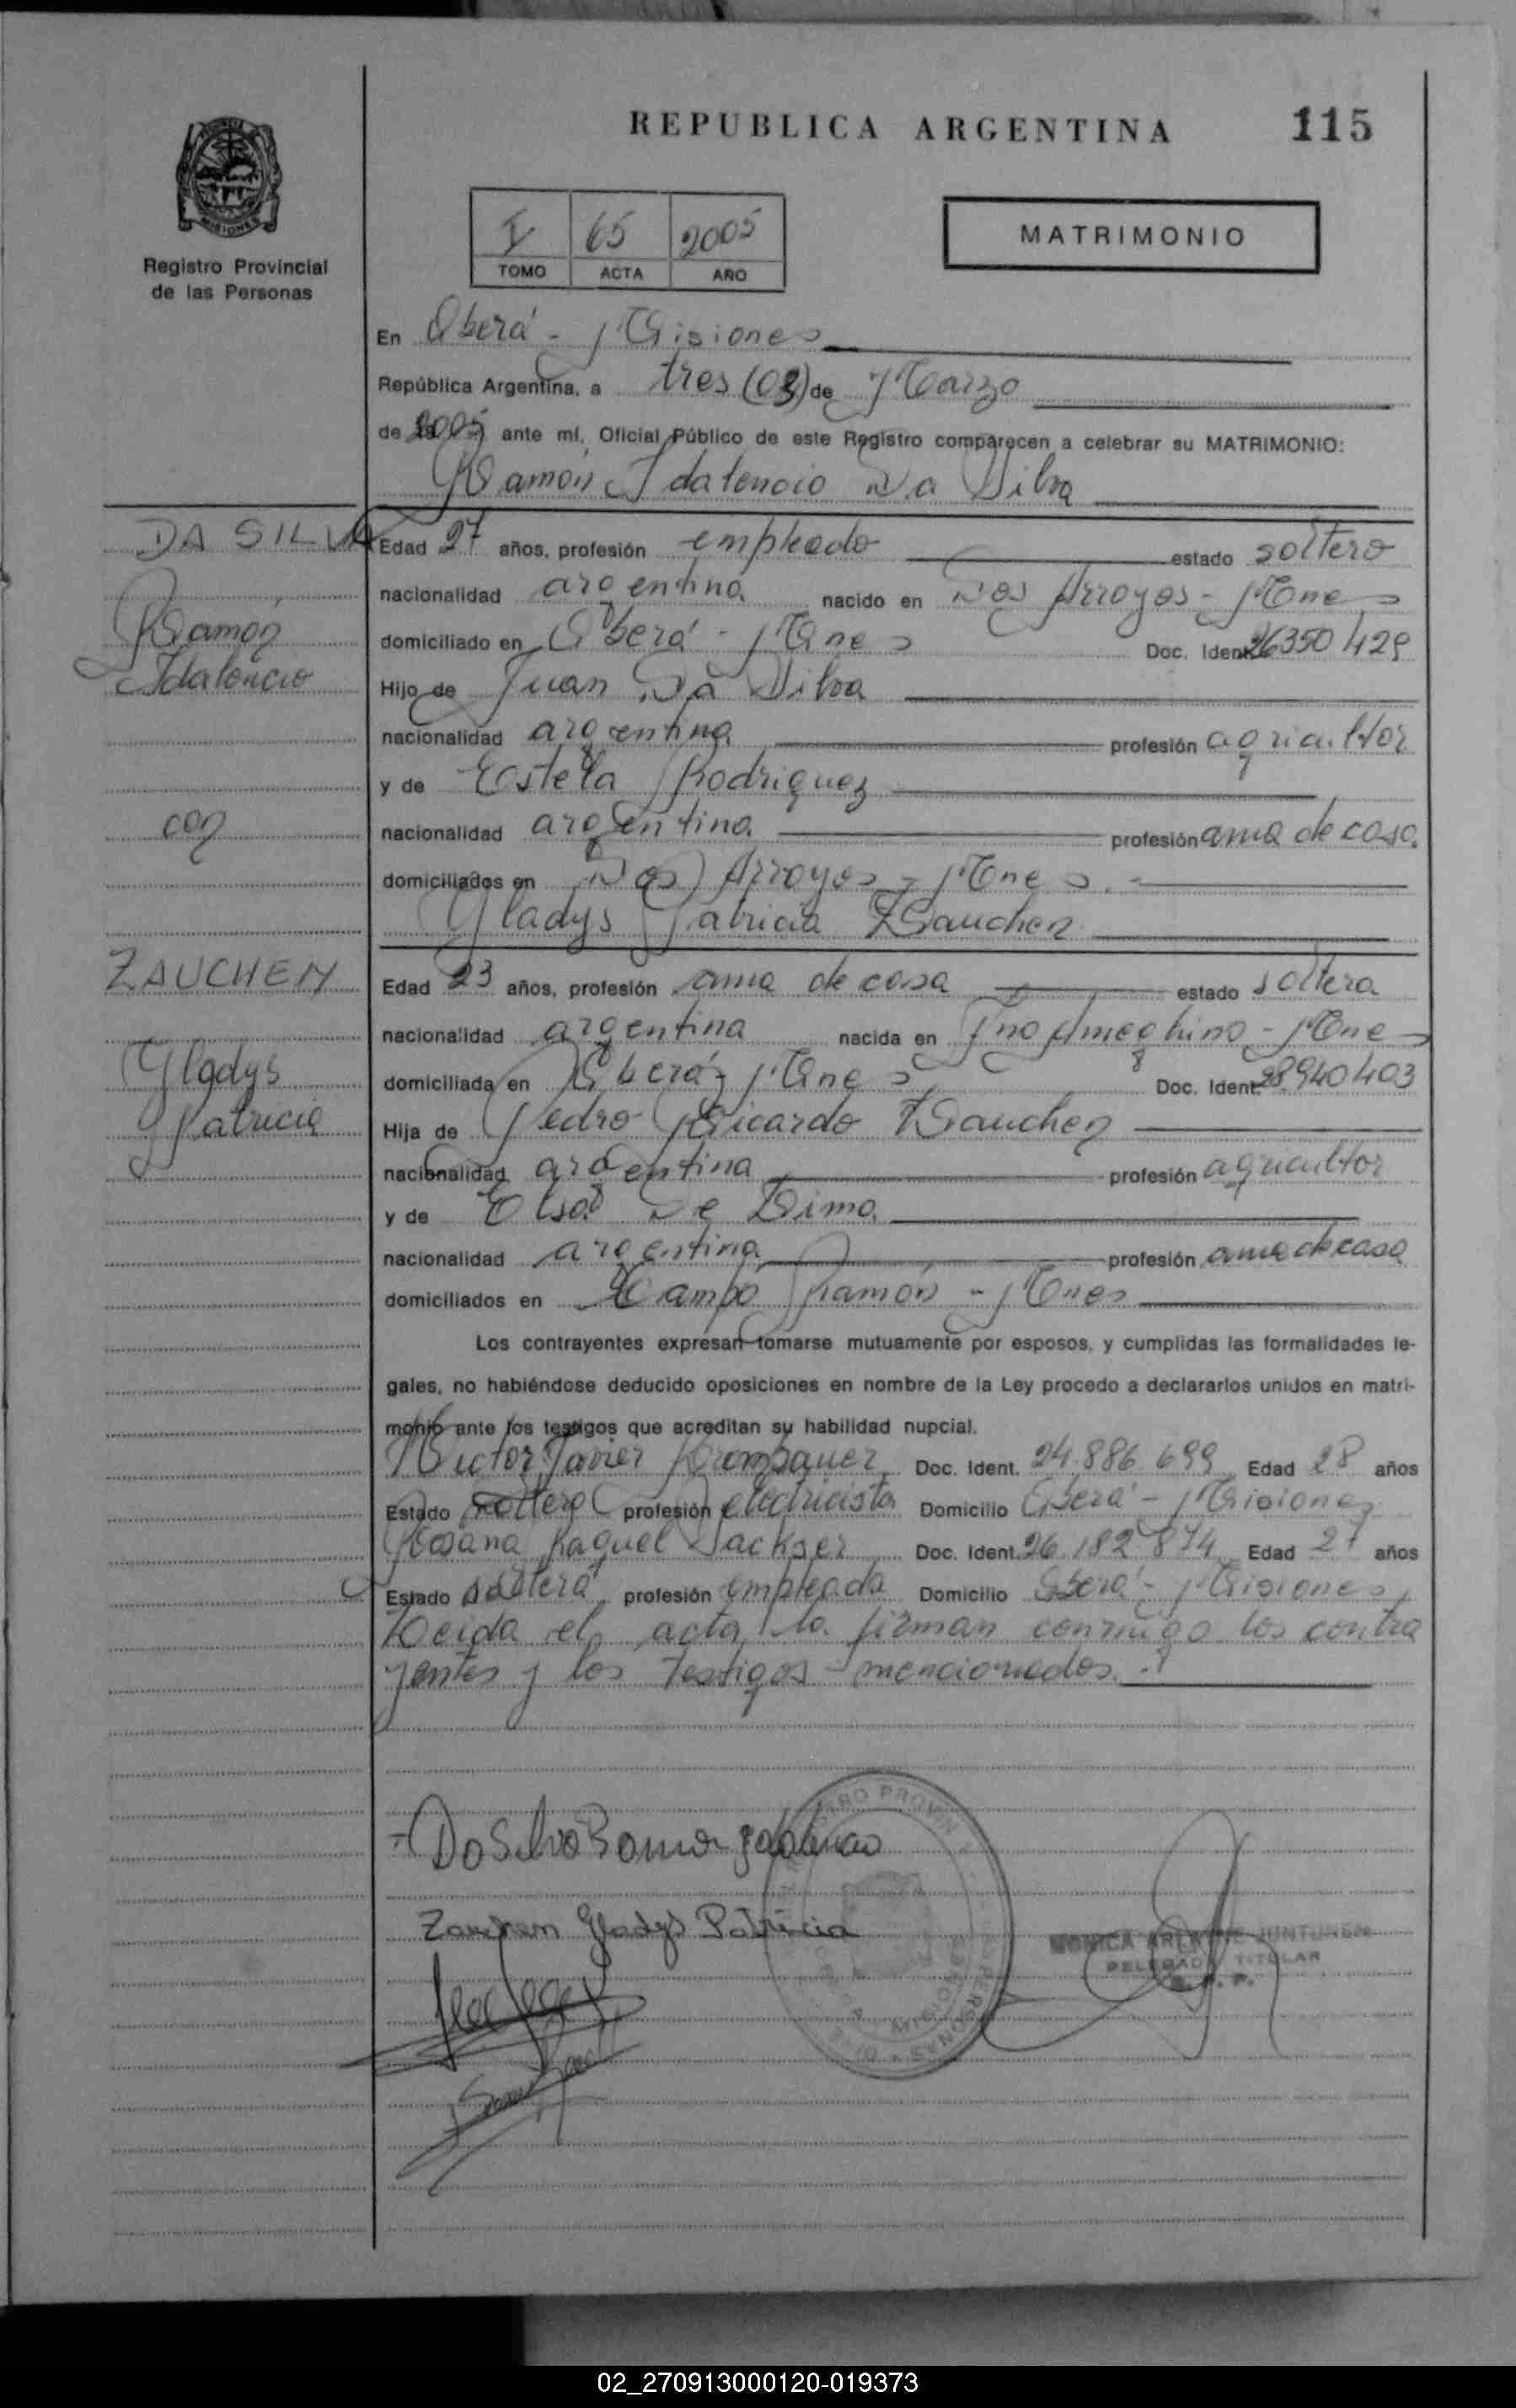 REPUBLICA ARGENTINA
115
MISIONES
Registro Provincial
de las Personas
I 65 2005
TOMO ACTA AÑO
MATRIMONIO
En Oberá - Misiones
República Argentina, a tres (03) de Marzo
de 2005 ante mí, Oficial Público de este Registro comparecen a celebrar su MATRIMONIO:
Ramón Idalencio Da Silva
DA SILVA
Ramón
Idalencio
con
ZAUCHEN
Gladys
Patricia
Edad 27 años, profesión empleado estado soltero
nacionalidad argentina nacido en Dos Arroyos - Mnes
domiciliado en Oberá - Mnes Doc. Ident. 26350429
Hijo de Juan Da Silva
nacionalidad argentina profesión agricultor
y de Estela Rodriguez
nacionalidad argentina profesión ama de casa
domiciliados en Dos Arroyos - Mnes.-
Gladys Patricia Zauchen
Edad 23 años, profesión ama de casa estado soltera
nacionalidad argentina nacida en Fno Ameghino - Mnes
domiciliada en Oberá - Mnes Doc. Ident. 28940403
Hija de Pedro Ricardo Zauchen
nacionalidad argentina profesión agricultor
y de Elsa De Lima
nacionalidad argentina profesión ama de casa
domiciliados en Campo Ramón - Mnes
Los contrayentes expresan tomarse mutuamente por esposos, y cumplidas las formalidades le-
gales, no habiéndose deducido oposiciones en nombre de la Ley procedo a declararlos unidos en matri-
monio ante los testigos que acreditan su habilidad nupcial.
Victor Javier Krompauer Doc. Ident. 24.886.699 Edad 28 años
Estado soltero profesión electricista Domicilio Oberá - Misiones
Rosana Raquel Sackser Doc. Ident. 26.182.874 Edad 27 años
Estado soltera profesión empleada Domicilio Oberá - Misiones
Leida el acta la firman conmigo los contra
yentes y los testigos mencionados.-
Da Silva Ramon Idalencio
Zauchen Gladys Patricia
MONICA JUNTUNEN
DELEGADA TITULAR
02_270913000120-019373